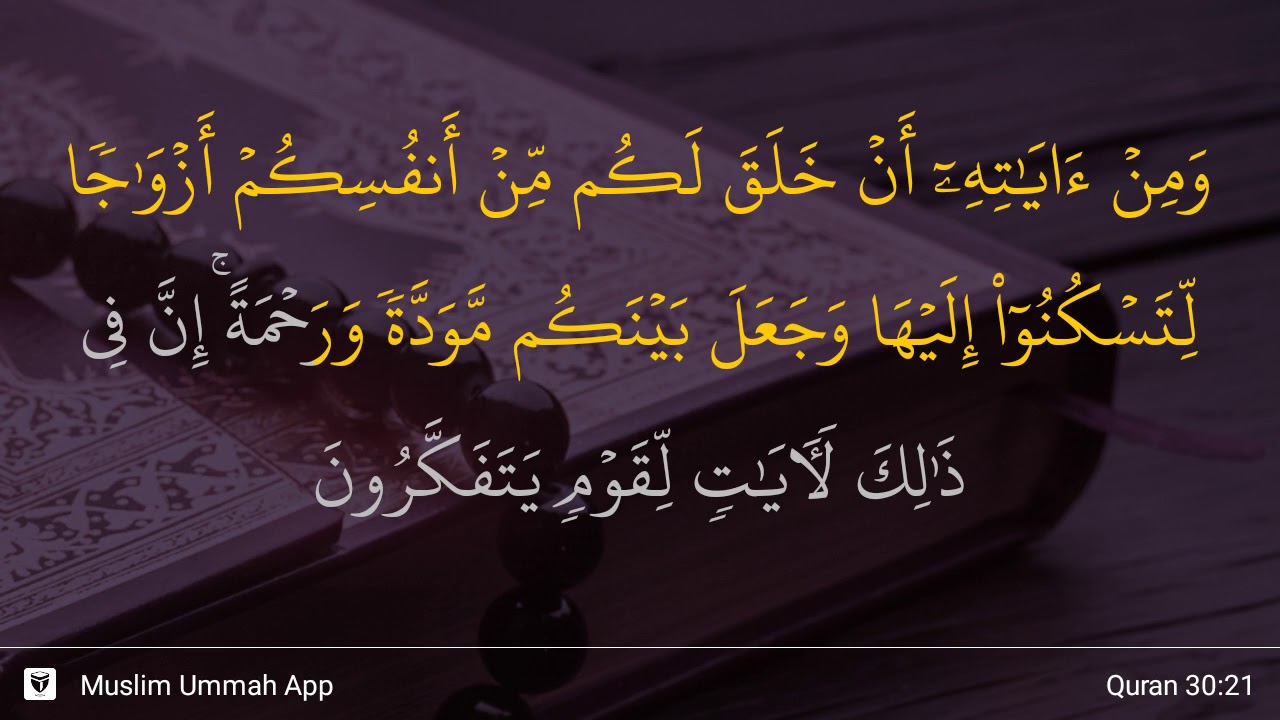 وَمِنْ ءَايَـٰتِهِۦٓ أَنْ خَلَقَ لَكُم مِّنْ أَنفُسِكُمْ أَزْوَٰجًا
لِّتَسْكُنُوٓا۟ إِلَيْهَا وَجَعَلَ بَيْنَكُم مَّوَدَّةً وَرَحْمَةً ۚ إِنَّ فِى
ذَٰلِكَ لَـَٔايَـٰتٍ لِّقَوْمٍ يَتَفَكَّرُونَ
Muslim Ummah App
Quran 30:21